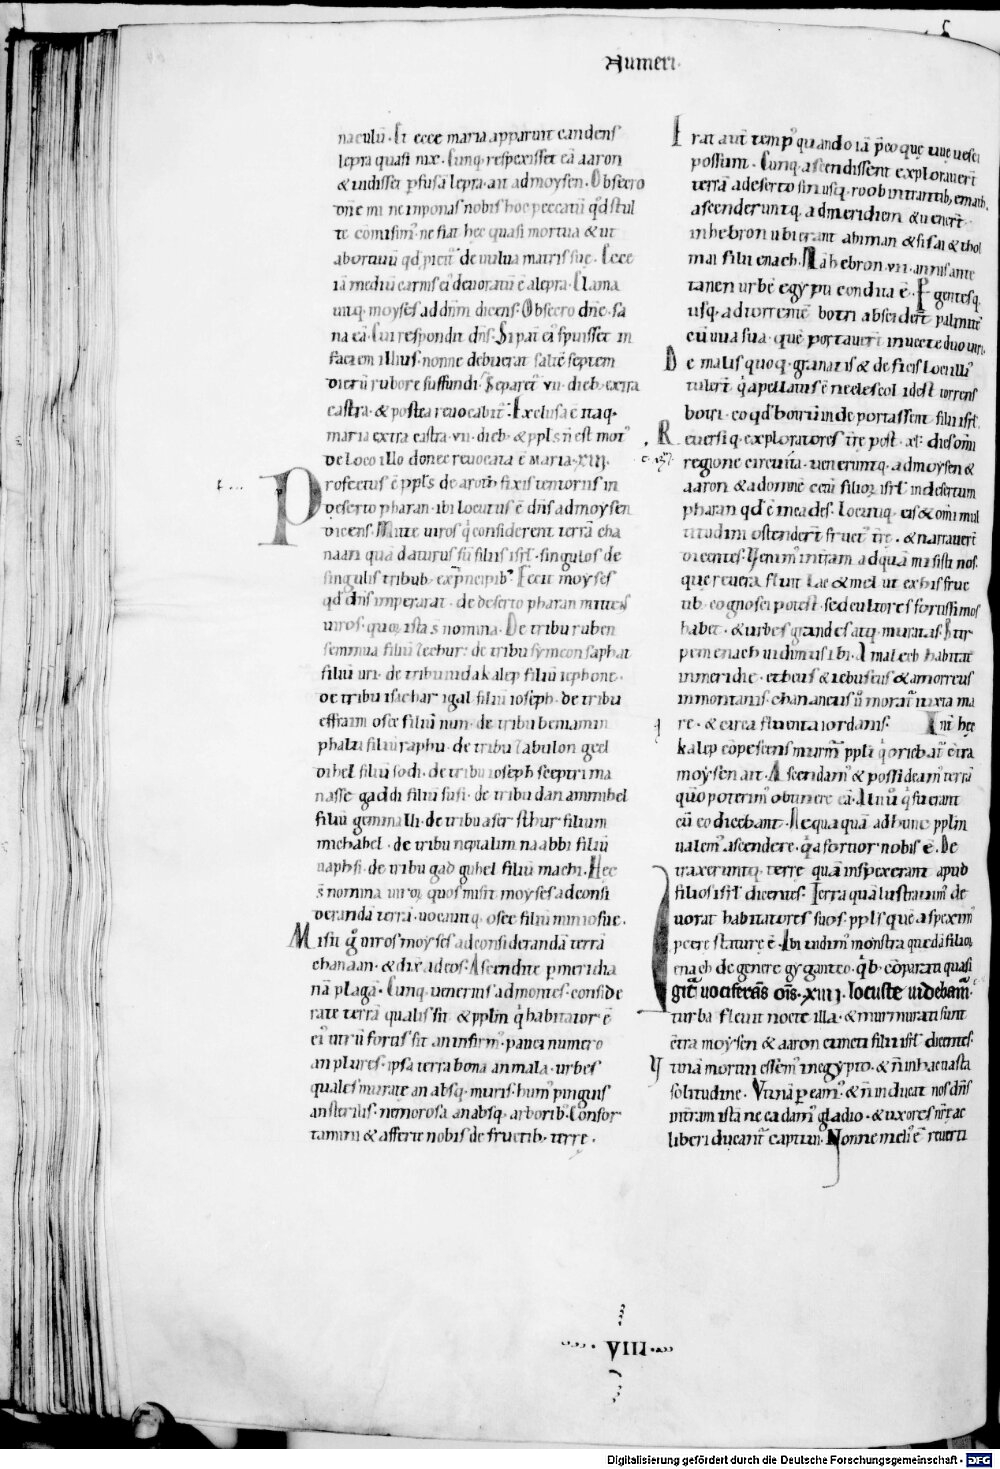 Numeri.
naculū. Et ecce maria apparuit candens
lepra quasi nix. Cunq; respexisset eā aaron
& uidisset pfusā lepra. ait ad moysen. Obsecro
dñe mi ne inponas nobis hoc peccatū qd̄ stul
te comisim᷒. ne fiat hec quasi mortua & ut
abortiuū qd̄ picit᷒ de uulua matris sue. Ecce
iā mediū carnis ei᷒ deuoratū ē a lepra. Clama
uitq; moyses ad dñm dicens. Obsecro dñe. sa
na eā. Cui respondit dñs. Si pat̄ ei᷒ spuisset in
faciem illius. nonne debuerat saltē septem
dierū rubore suffundi. Separet᷒ vii. dieb; extra
castra. & postea reuocabit᷒. Exclusa ē itaq;
maria extra castra. vii. dieb; & ppls ñ est mot᷒
de loco illo donec reuocata ē Maria. XIII.
Profectus ē ppls de aroth fixis tentoriis in
deserto pharan. ibi locutus ē dñs ad moysen
dicens. Mitte uiros q̇ considerent terrā cha
naan quā daturus sū filiis isrl. singulos de
singulis tribub; ex p̄ncipib᷒. Fecit moyses
qd̄ dñs imperarat. de deserto pharan mittens
uiros. quoꝝ ista s̄ nomina. De tribu ruben
semmua filiū zechur: de tribu symeon saphat
filiū uri. de tribu iuda kalep filiū iephone.
de tribu isachar igal filiū ioseph. de tribu
effraim osee filiū nun. de tribu beniamin
phalti filiū raphu. de tribu zabulon geel
dihel filiū sodi. de tribu ioseph sceptri ma
nasse gaddi filiū susi. de tribu dan ammihel
filiū gemmalli. de tribu aser sthur filium
michahel. de tribu neptalim naabbi filiū
uaphsi. de tribu gad guhel filiū machi. Hec
s̄ nomina uiroꝝ quos misit moyses ad consi
derandā terrā. uocauitq; osee filiū nun iosue.
Misit g̊ uiros moyses ad considerandā terrā
chanaan. & dix̄ ad eos. Ascendite p meridia
nā plagā. Cunq; ueneritis ad montes. conside
rate terrā qualis sit. & pplm q̇ habitator ē
ei᷒ utrū fortis sit an infirm᷒. pauci numero
an plures. ipsa terra bona an mala. urbes
quales murate an absq; muris. hum᷒ pinguis
an sterilis. nemorosa an absq; arborib;. Confor
tamini & afferte nobis de fructib; terre.
Erat aut̄ temp᷒ quando iā p̄coque uue uesci
possunt. Cunq; ascendissent explorauert̄
terrā a deserto sin usq; roob intrantib; emath.
ascenderuntq; ad meridiem & uenert̄
in hebron ubi erant ahiman & sisai & thol
mai filii enach. Nā hebron. vii. annis ante
tanen urbē egypti condita ē. Pgentesq;
usq; ad torrentē botri absciderт̄ palmitē
cū uua sua. quē portauert̄ in uecte duo uiri.
De malis quoq; granatis & de ficis loci illi᷒
tulert̄. q̇ apellatus ē neelescol idest torrens
botri. eo qd̄ botrū inde portassent filii isrl.
Reuersiq; exploratores tr̄e post .xl. dies om̄i
regione circuita. uenerunt q; ad moysen &
aaron & ad omnē cetū filioꝝ isrl in desertum
pharan qd̄ ē in cades. Locutiq; eis & om̄i mul
titudini ostendert̄ fruct᷒ tr̄e. & narrauert̄
dicentes. Uenim᷒ in terram ad quā misisti nos.
que reuera fluit lac & mel ut ex his fruc
tib; cognosci potest. sed cultores fortissimos
habet. & urbes grandes atq; muratas. Stir
pem enach uidimus ibi. Amalech habitat
in meridie. etheus & iebuseus & amorreus
in montanis. chananeus ū morat᷒ iuxta ma
re. & circa fluenta iordanis. Int̄ hec
kalep cōpescens murm᷒ ppli q̇ oriebat᷒ c̄tra
moysen ait. Ascendam᷒ & possideam᷒ terrā
qūo poterim᷒ obtinere eā. Alii ū q̇ fuerant
cū eo dicebant. Nequaquā ad hunc pplm
ualem᷒ ascendere. q̇a fortior nobis ē. De
traxeruntq; terre quā inspexerant apud
filios isrl dicentes. Terra quā lustrauim᷒ de
uorat habitatores suos. ppls quē aspexim᷒
pcere stature ē. Ibi uidim᷒ monstra quedā filioꝝ
enach de genere gyganteo. q̇b; cōparati quasi
Igit᷒ uociferās om̄s. XIIII. locuste uidebam᷒.
turba fleuit nocte illa. & murmurati sunt
c̄tra moysen & aaron cuncti filii isrl dicentes.
Utinā mortui essem᷒ in egypto. & ñ in hac uasta
solitudine. Utinā peam᷒. & ñ inducat nos dñs
in terram istā ne cadam᷒ gladio. & uxores nr̄e ac
liberi ducant᷒ captiui. Nonne meli᷒ ē reuerti
VIII
Digitalisierung gefördert durch die Deutsche Forschungsgemeinschaft - DFG